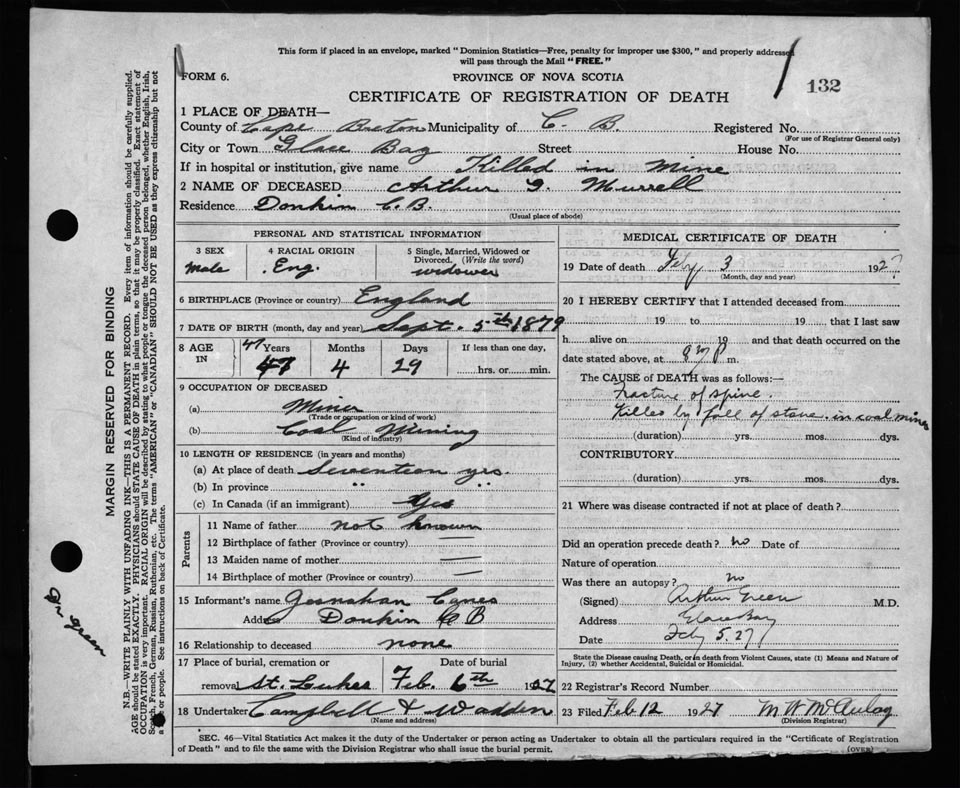 This form if placed in an envelope, marked "Dominion Statistics—Free, penalty for improper use $300," and properly addressed
will pass through the Mail "FREE."
FORM 6.
PROVINCE OF NOVA SCOTIA
132
CERTIFICATE OF REGISTRATION OF DEATH
1 PLACE OF DEATH—
County of Cape Breton Municipality of C. B. Registered No.
(For use of Registrar General only)
City or Town Glace Bay Street House No.
If in hospital or institution, give name Killed in Mine
2 NAME OF DECEASED Arthur G. Murrell
Residence Donkin C.B.
(Usual place of abode)
PERSONAL AND STATISTICAL INFORMATION
3 SEX 4 RACIAL ORIGIN 5 Single, Married, Widowed or
Divorced. (Write the word)
Male Eng. widower
6 BIRTHPLACE (Province or country) England
7 DATE OF BIRTH (month, day and year) Sept. 5th 1879
8 AGE IN 47 Years Months Days If less than one day,
47 4 29 hrs. or min.
9 OCCUPATION OF DECEASED
(a) Miner
(Trade or occupation or kind of work)
(b) Coal Mining
(Kind of industry)
10 LENGTH OF RESIDENCE (in years and months)
(a) At place of death Seventeen yrs.
(b) In province " "
(c) In Canada (if an immigrant) Yes
Parents
11 Name of father not known
12 Birthplace of father (Province or country) —
13 Maiden name of mother —
14 Birthplace of mother (Province or country) —
15 Informant's name
Address Donkin C B
16 Relationship to deceased none
17 Place of burial, cremation or Date of burial
removal St. Lukes Feb. 6th 1927
18 Undertaker Campbell & Wadden
(Name and address)
MEDICAL CERTIFICATE OF DEATH
19 Date of death Feby 3 1927
(Month, day and year)
20 I HEREBY CERTIFY that I attended deceased from
19 to 19 , that I last saw
h alive on 19 and that death occurred on the
date stated above, at m.
The CAUSE of DEATH was as follows:—
Fracture of spine.
Killed by fall of stone in coal mine
(duration) yrs. mos. dys.
CONTRIBUTORY
(duration) yrs. mos. dys.
21 Where was disease contracted if not at place of death?
Did an operation precede death? no Date of
Nature of operation
Was there an autopsy? no
(Signed) Arthur Green M.D.
Address Glace Bay
Date Feby 5. 27
State the Disease causing Death, or in death from Violent Causes, state (1) Means and Nature of
Injury, (2) whether Accidental, Suicidal or Homicidal.
22 Registrar's Record Number
23 Filed Feb 12 1927 M W McAulay
(Division Registrar)
SEC. 46—Vital Statistics Act makes it the duty of the Undertaker or person acting as Undertaker to obtain all the particulars required in the "Certificate of Registration
of Death" and to file the same with the Division Registrar who shall issue the burial permit. (OVER)
MARGIN RESERVED FOR BINDING
N.B.—WRITE PLAINLY WITH UNFADING INK—THIS IS A PERMANENT RECORD. Every item of information should be carefully supplied.
AGE should be stated EXACTLY. PHYSICIANS should STATE CAUSE OF DEATH in plain terms, so that it may be properly classified. Exact statement of
OCCUPATION is very important. RACIAL ORIGIN will be described by stating to what people or tongue the deceased person belonged, whether English, Irish,
Scotch, French, German, Russian, Ruthenian, etc. The terms "AMERICAN" or "CANADIAN" SHOULD NOT BE USED as they express citizenship but not
a race or people. See instructions on back of Certificate.
Dr. Green